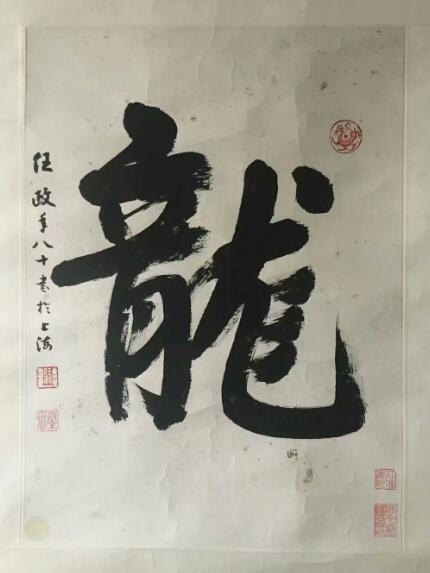 龍
任政年八十書於上海